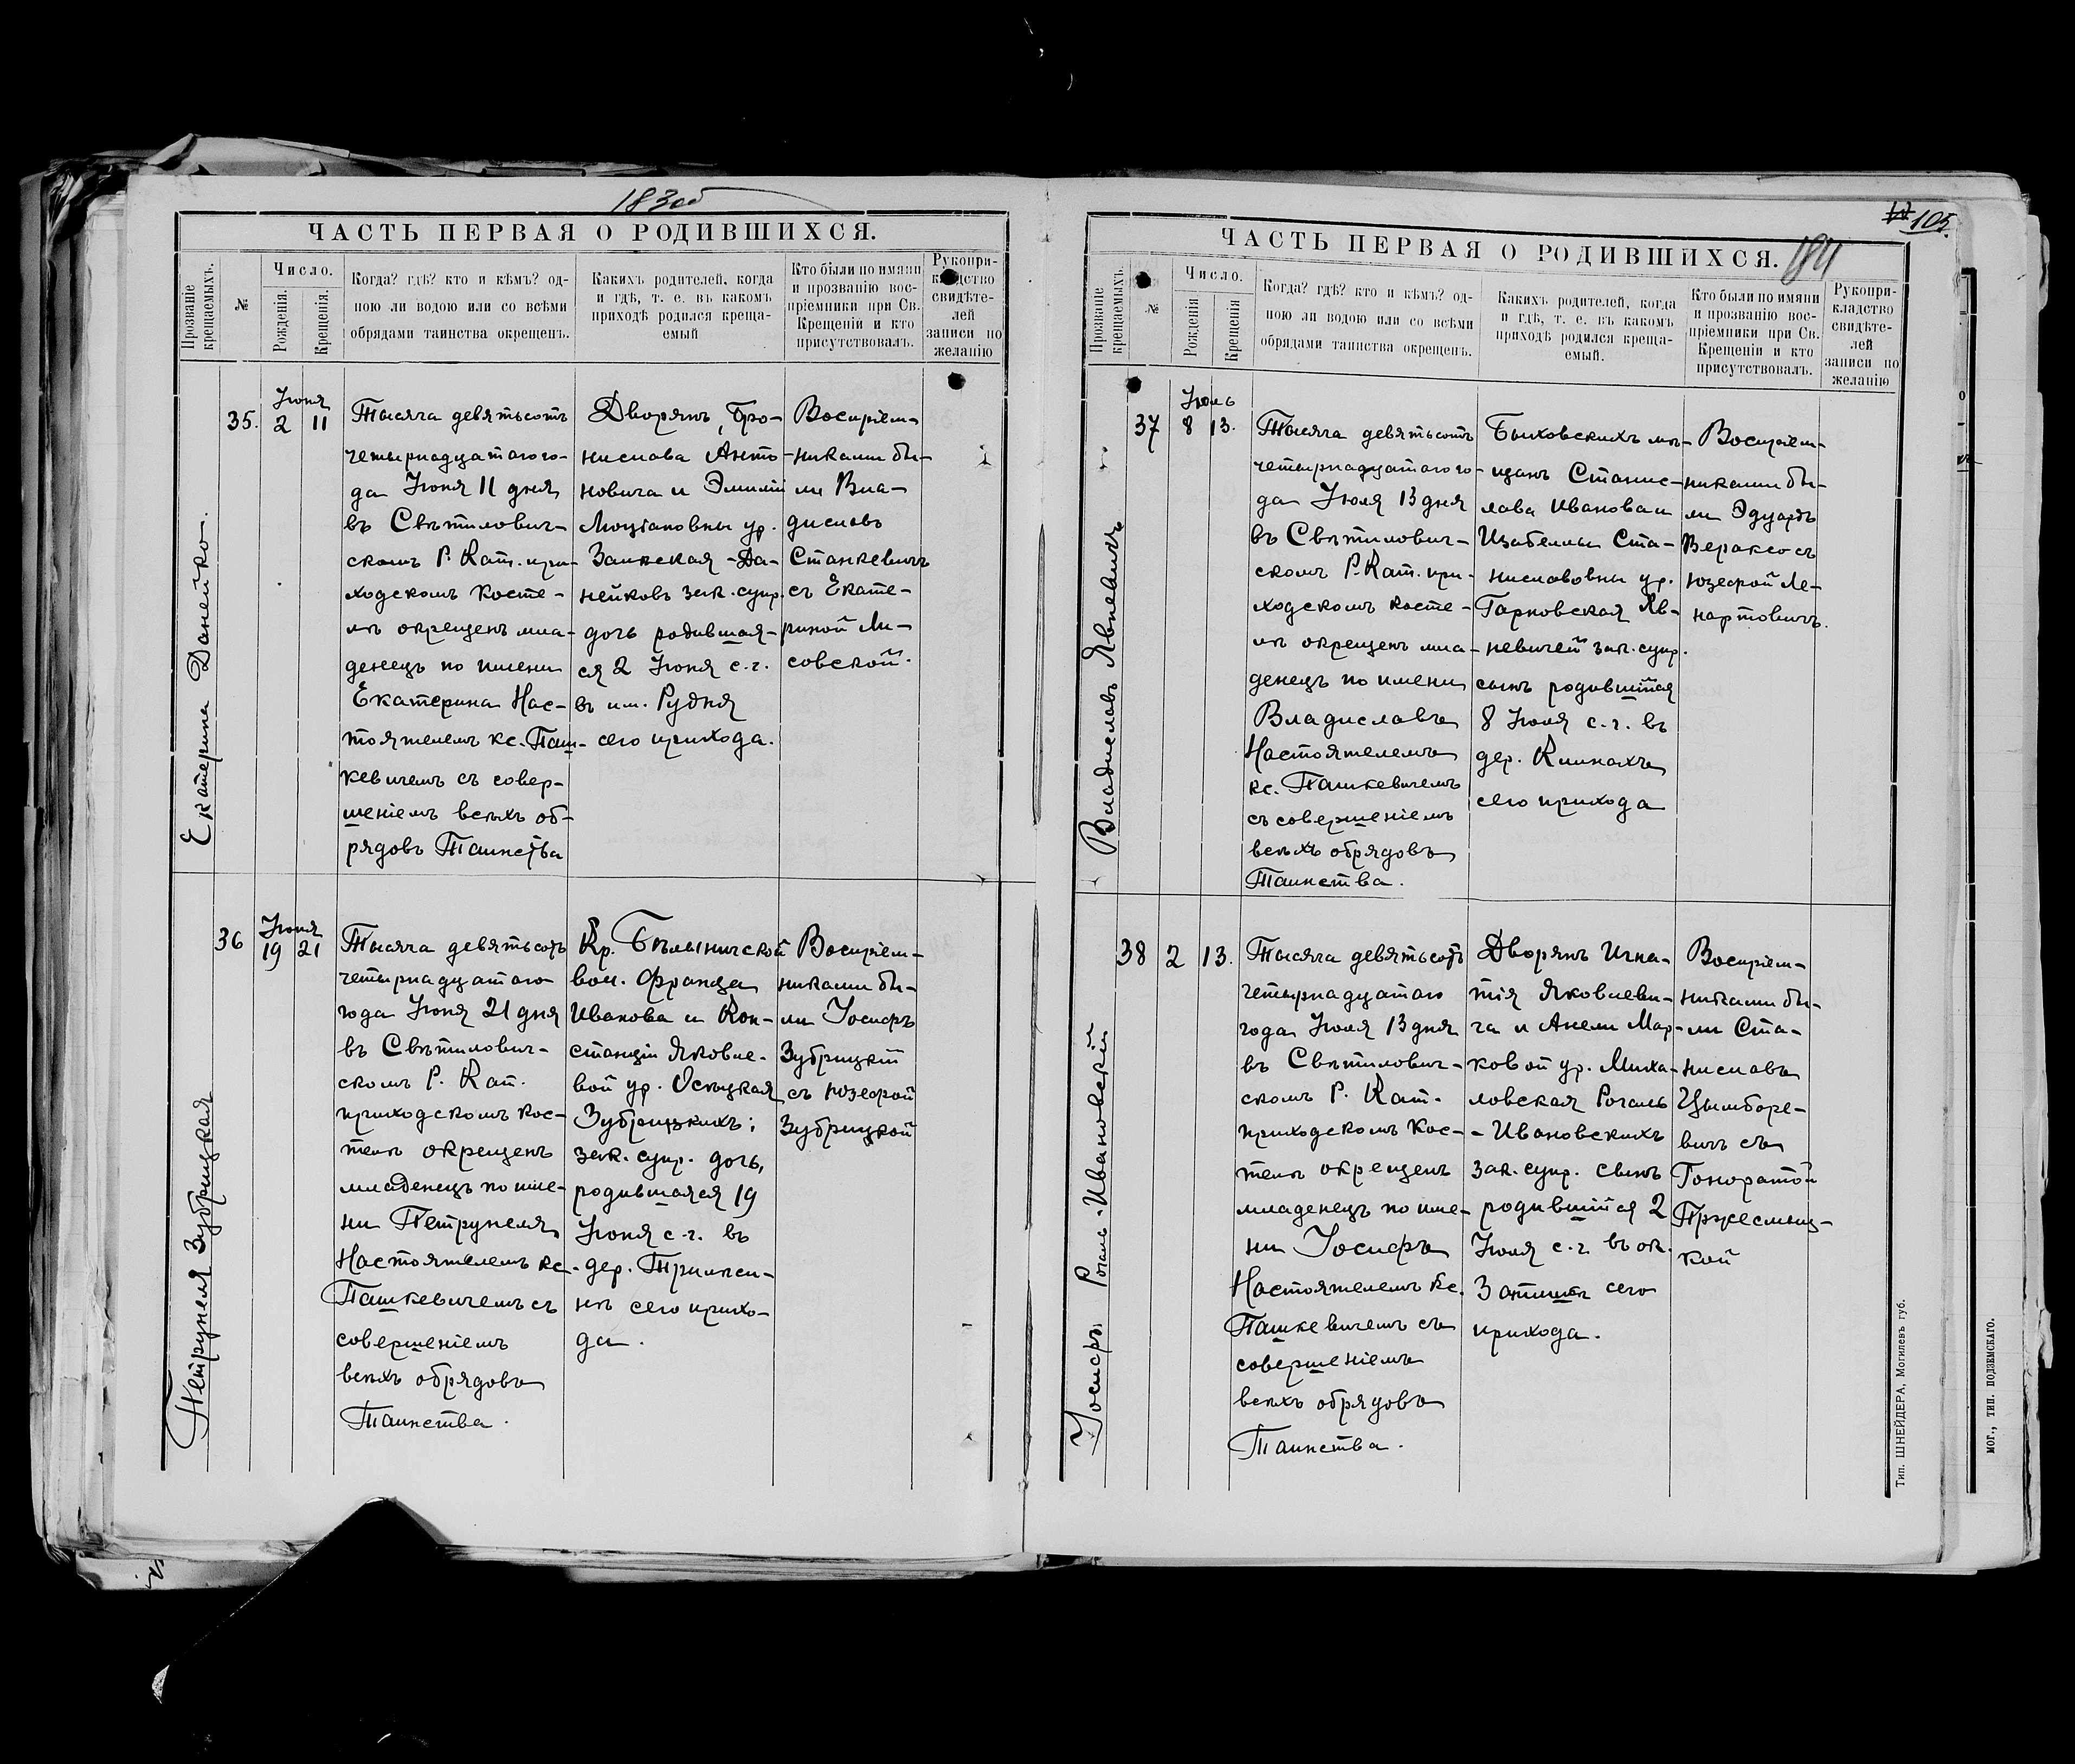 183об
ЧАСТЬ ПЕРВАЯ О РОДИВШИХСЯ.
Прозваніе крещаемыхъ.
№
Число.
Рожденія.
Крещенія.
Когда? гдѣ? кто и кѣмъ? од-
ною ли водою или со всѣми
обрядами таинства окрещенъ.
Какихъ родителей, когда
и гдѣ, т. е. въ какомъ
приходѣ родился креща-
емый
Кто были по имяни
и прозванію вос-
пріемники при Св.
Крещеніи и кто
присутствовалъ.
Рукопри-
кладство
свидѣте-
лей
записи по
желанію
Екатерина Данейко.
35.
Іюня
2 11
Тысяча девятьсотъ
четырнадцатаго го-
да Іюня 11 дня
въ Свѣтилович-
скомъ Р. Кат. при-
ходскомъ косте-
лѣ окрещенъ мла-
денецъ по имени
Екатерина Нас-
тоятелемъ кс. Паш-
кевичемъ съ совер-
шеніемъ всѣхъ об-
рядовъ Таинства
Дворянъ, Бро-
нислава Анто-
новича и Эмиліи
Люціановны ур.
Заикская - Да-
нейковъ зак. супр.
дочь родившая-
ся 2 Іюня с. г.
въ им. Рудня
сего прихода.
Воспріем-
никами бы-
ли Вла-
диславъ
Станкевичъ
съ Екате-
риной Ли-
совской.
Петрунеля Зубрицкая
36
Іюня
19 21
Тысяча девятьсотъ
четырнадцатаго
года Іюня 21 дня
въ Свѣтилович-
скомъ Р. Кат.
приходскомъ кос-
телѣ окрещенъ
младенецъ по име-
ни Петрунеля
Настоятелемъ кс.
Пашкевичемъ съ
совершеніемъ
всѣхъ обрядовъ
Таинства.
Кр. Бѣлыничской
вол. Франца
Иванова и Кон-
станціи Яковле-
вой ур. Осецкая
Зубрицкихъ;
зак. супр. дочь,
родившаяся 19
Іюня с. г. въ
дер. Трилеси-
нѣ сего прихо-
да.
Воспріем-
никами бы-
ли Іосифъ
Зубрицкій
съ Юзефой
Зубрицкой
105.
184
ЧАСТЬ ПЕРВАЯ О РОДИВШИХСЯ.
Прозваніе крещаемыхъ.
№
Число.
Рожденія
Крещенія
Когда? гдѣ? кто и кѣмъ? од-
ною ли водою или со всѣми
обрядами таинства окрещенъ.
Какихъ родителей, когда
и гдѣ, т. е. въ какомъ
приходѣ родился креща-
емый.
Кто были по имяни
и прозванію вос-
пріемники при Св.
Крещеніи и кто
присутствовалъ.
Рукопри-
кладство
свидѣте-
лей
записи по
желанію
Владиславъ Явневичъ
37
Іюль
8 13.
Тысяча девятьсотъ
четырнадцатаго го-
да Іюля 13 дня
въ Свѣтилович-
скомъ Р. Кат. при-
ходскомъ косте-
лѣ окрещенъ мла-
денецъ по имени
Владиславъ
Настоятелемъ
кс. Пашкевичемъ
съ совершеніемъ
всѣхъ обрядовъ
Таинства.
Быховскихъ мѣ-
щанъ Станис-
лава Иванова и
Изабеллы Ста-
ниславовны ур.
Гарновская Яв-
невичей зак. супр.
сынъ родившійся
8 Іюля с. г. въ
дер. Климахъ
сего прихода
Воспріем-
никами бы-
ли Эдуардъ
Вераксо съ
Юзефой Ле-
нартовичъ.
Іосифъ Рогаль-Ивановскій
38
2 13.
Тысяча девятьсотъ
четырнадцатаго
года Іюля 13 дня
въ Свѣтилович-
скомъ Р. Кат.
приходскомъ кос-
телѣ окрещенъ
младенецъ по име-
ни Іосифъ
Настоятелемъ кс.
Пашкевичемъ съ
совершеніемъ
всѣхъ обрядовъ
Таинства.
Дворянъ Игна-
тія Яковлеви-
ча и Анели Мар-
ковой ур. Миха-
ловская Рогаль
- Ивановскихъ
зак. супр. сынъ
родившійся 2
Іюля с. г. въ ок.
Затишье сего
прихода.
Воспріем-
никами бы-
ли Ста-
ниславъ
Цымборе-
вичъ съ
Гоноратой
Пржесмыц-
кой
Тип. ШНЕЙДЕРА, Могилевъ губ.
МОГ., ТИП. ПОДЗЕМСКАГО.